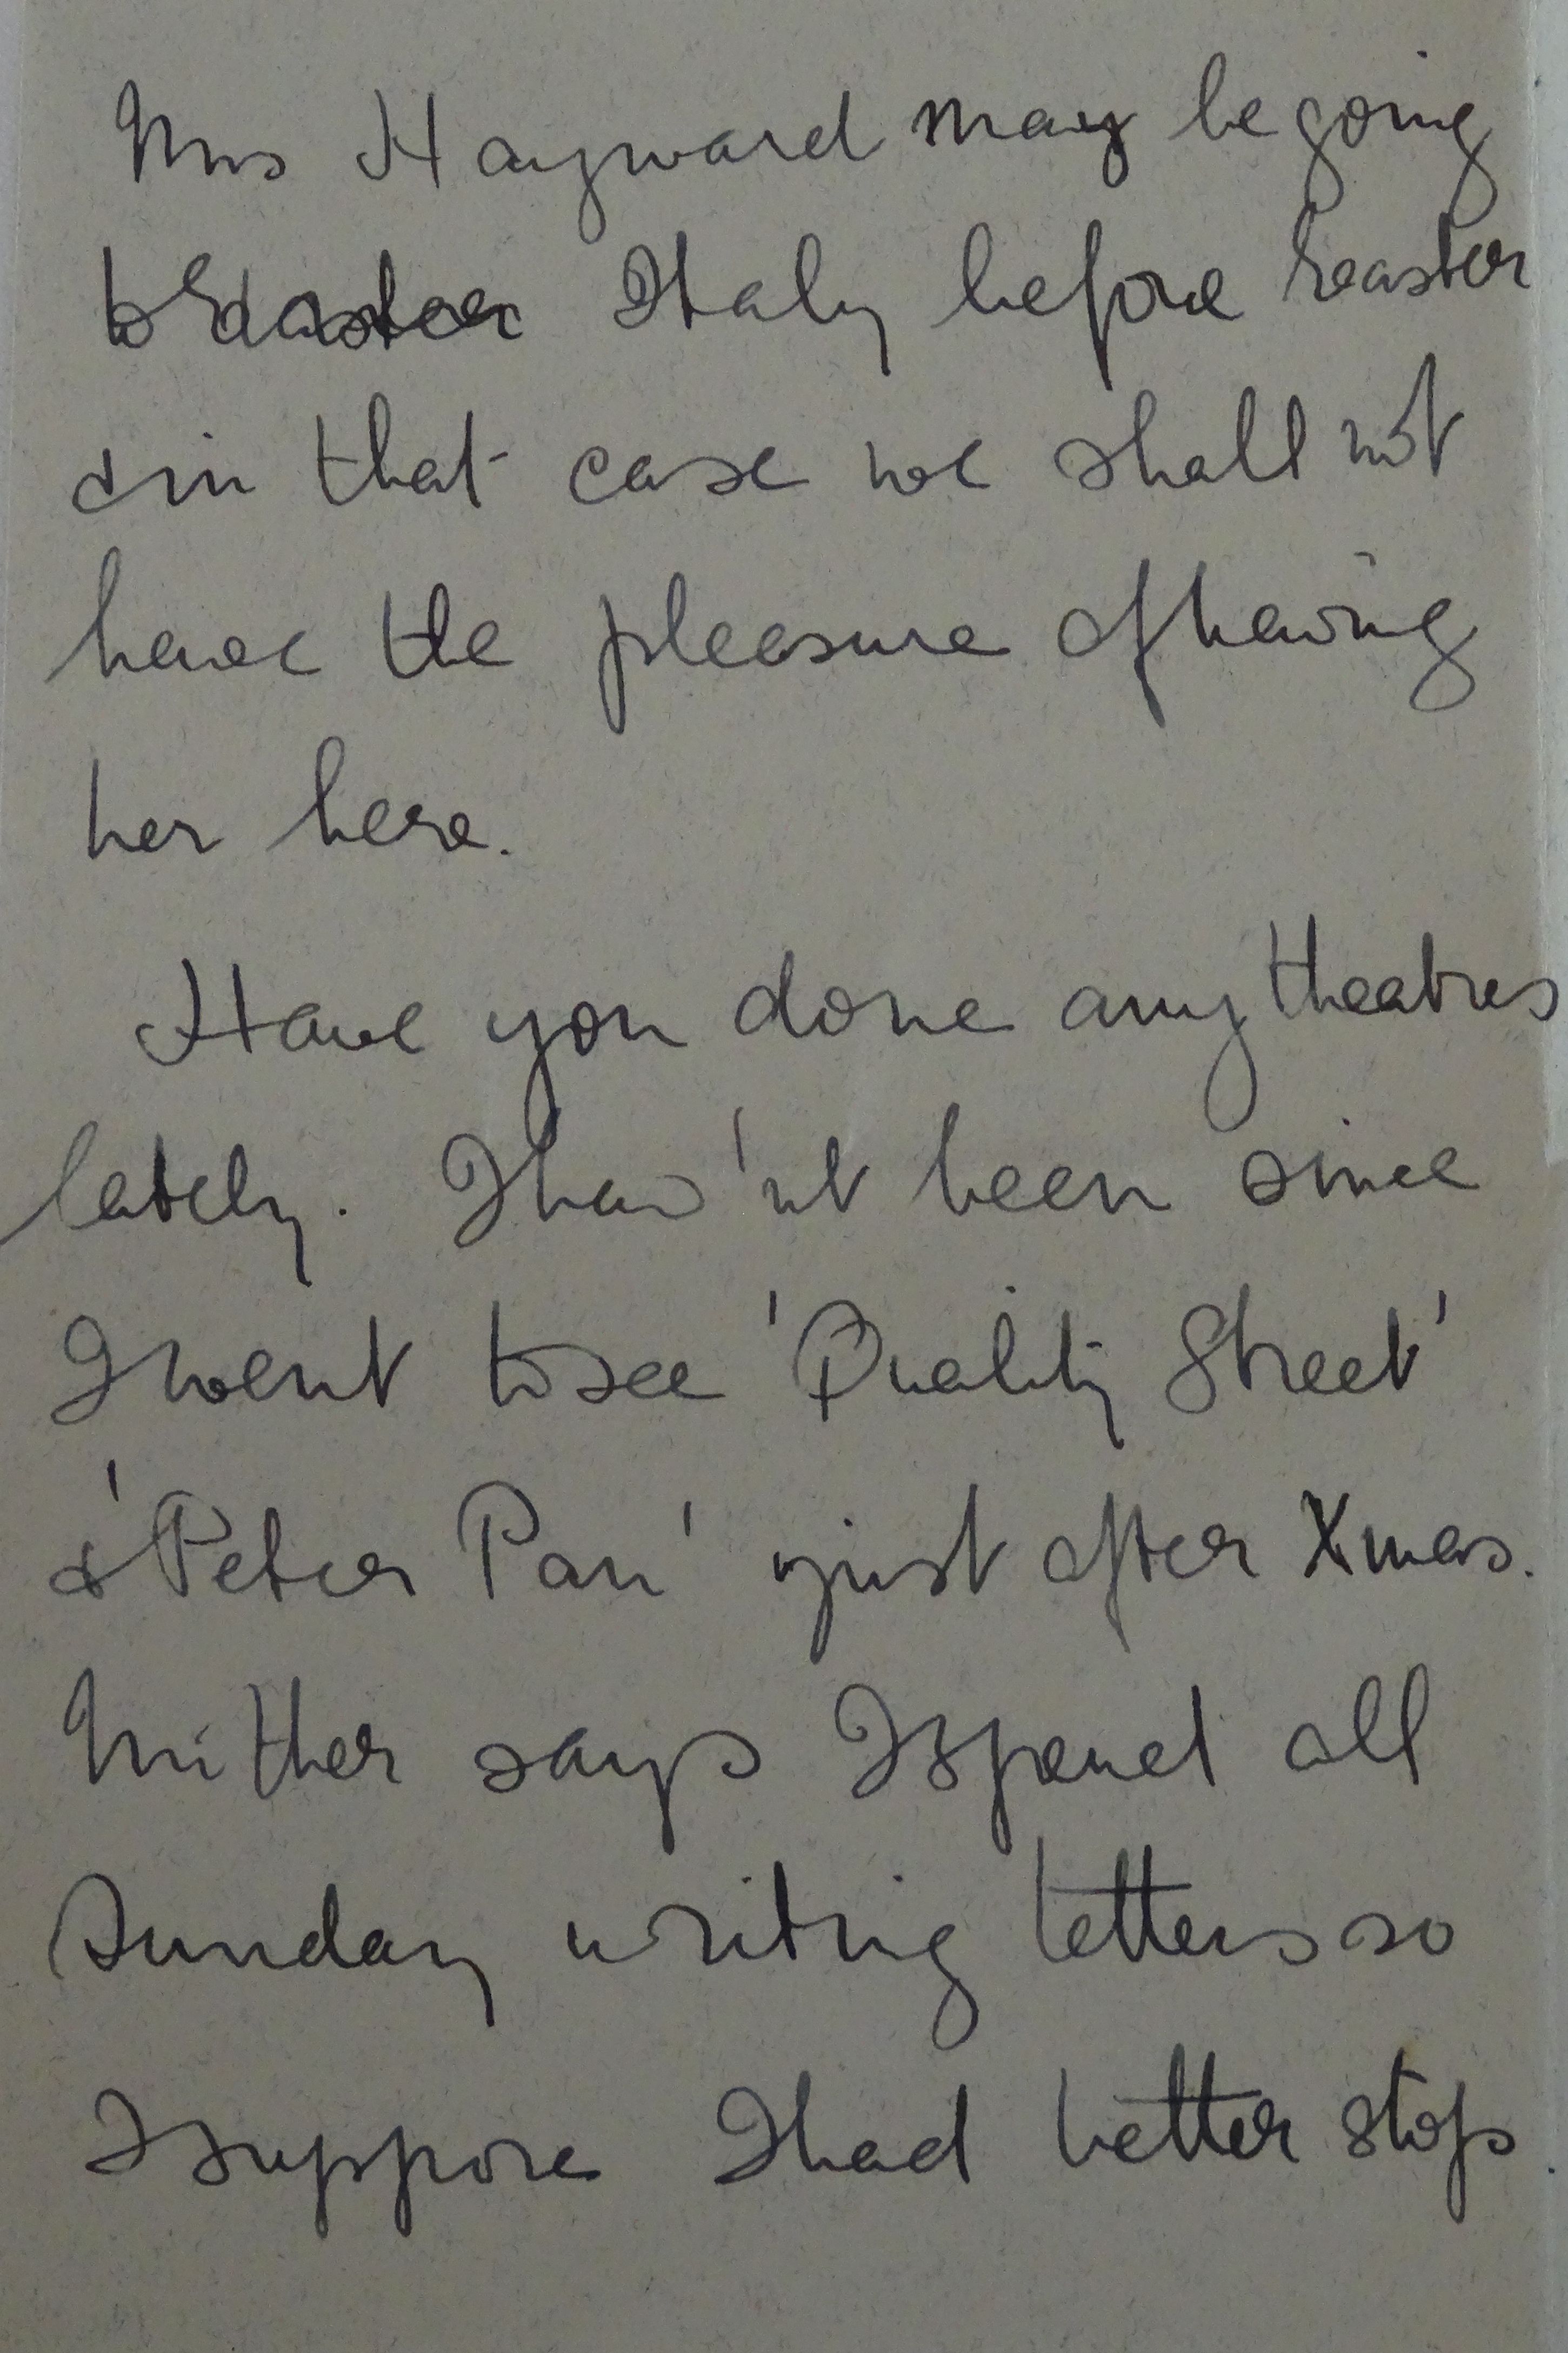 Mrs Hayward may be going
to Easter Italy before easter
& in that case we shall not
have the pleasure of having
her here.
Have you done any theatres
lately. I hav'nt been since
I went to see 'Quality Street'
& 'Peter Pan' just after Xmas.
Mither says I spend all
Sunday writing letters so
I suppose I had better stop.